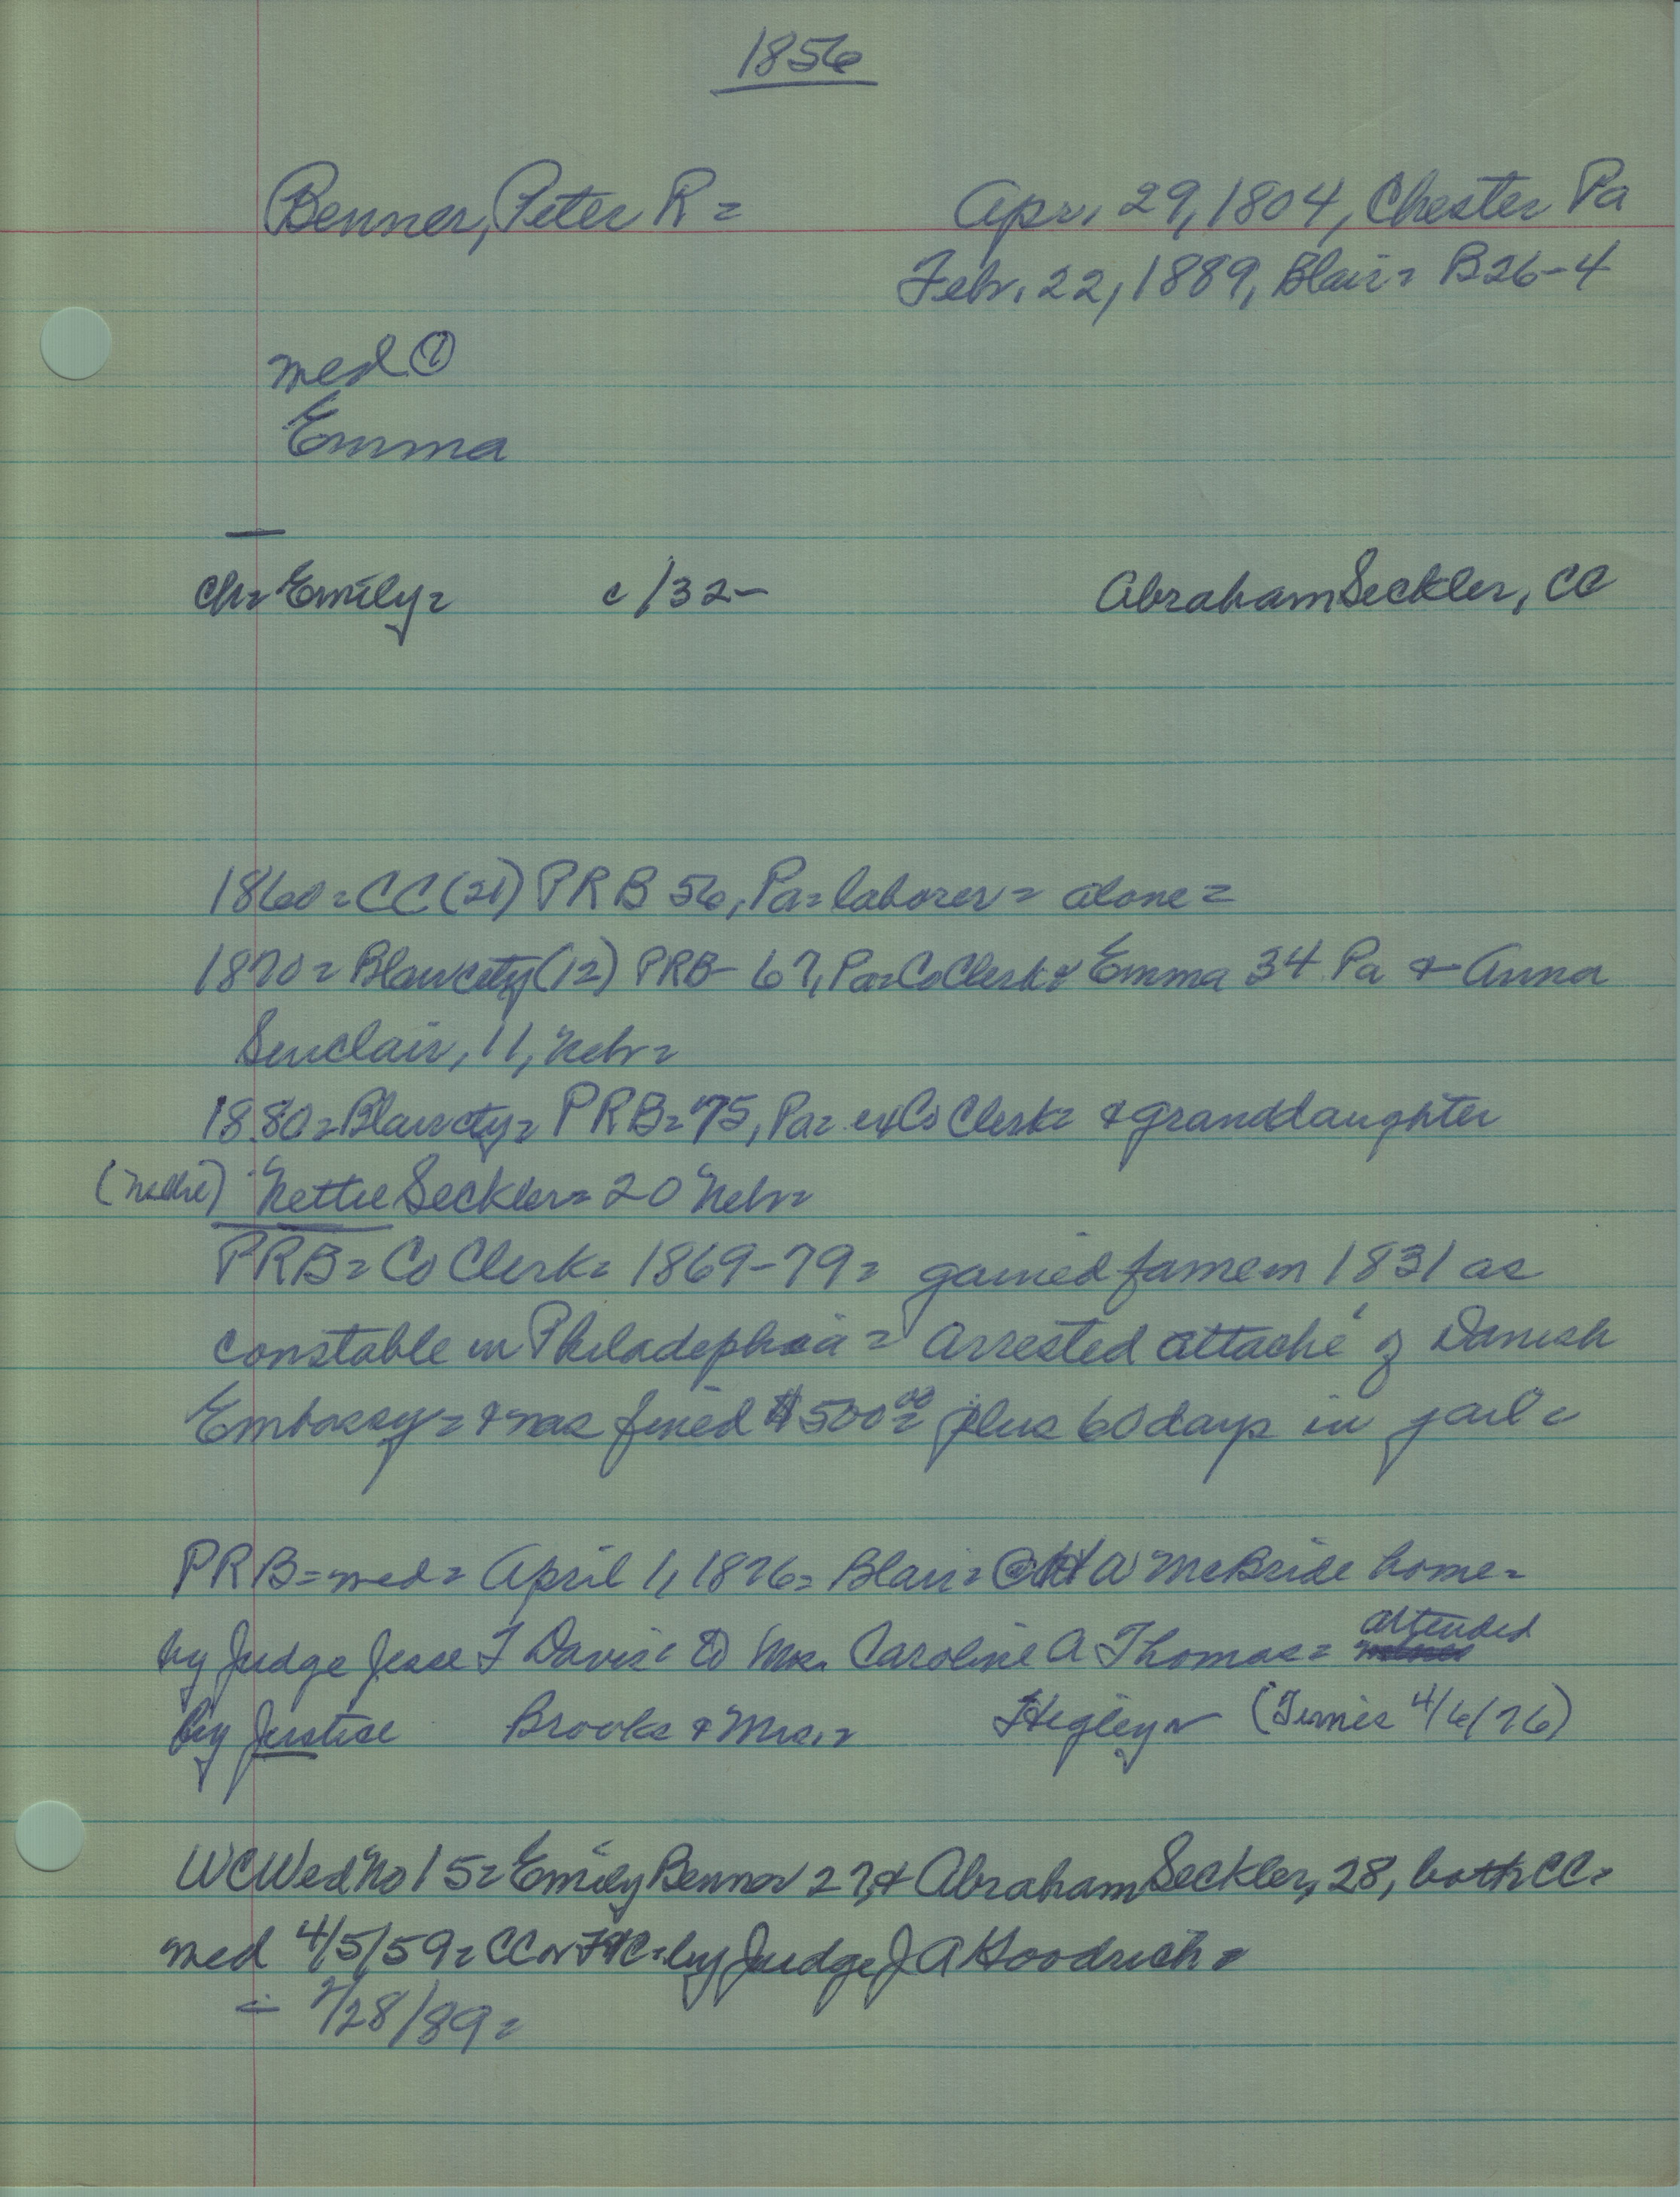 1856
Benner, Peter R = Apr. 29, 1804, Chester Pa
Febr. 22, 1889, Blair = B26-4
med ①
Emma
ch = Emily = c/32- Abraham Seckler, CC
1860 = CC (21) PRB 56, Pa = laborer = alone =
1870 = Blair city (12) PRB - 67, Pa = Co Clerk & Emma 34 Pa & Anna
Sinclair, 11, Nebr =
1880 = Blair cty = PRB = 75, Pa = ex Co Clerk = & granddaughter
(Nellie) Nettie Seckler = 20 Nebr =
PRB = Co Clerk = 1869-79 = gained fame in 1831 as
constable in Philadephia = arrested attaché of Danish
Embassy = & was fined $500.00 = plus 60 days in jail =
PRB = med = April 1, 1876 = Blair = @ H A McBride home =
by Judge Jesse T Davis = to Mrs. Caroline A Thomas = attended
by Justice Brooks & Mrs. = Higley = (Times 4/6/76)
WC Wed No 15 = Emily Benner 27, & Abraham Seckler, 28, both CC =
med 4/5/59 = CC by Judge J A Goodrich =
= 2/28/89 =